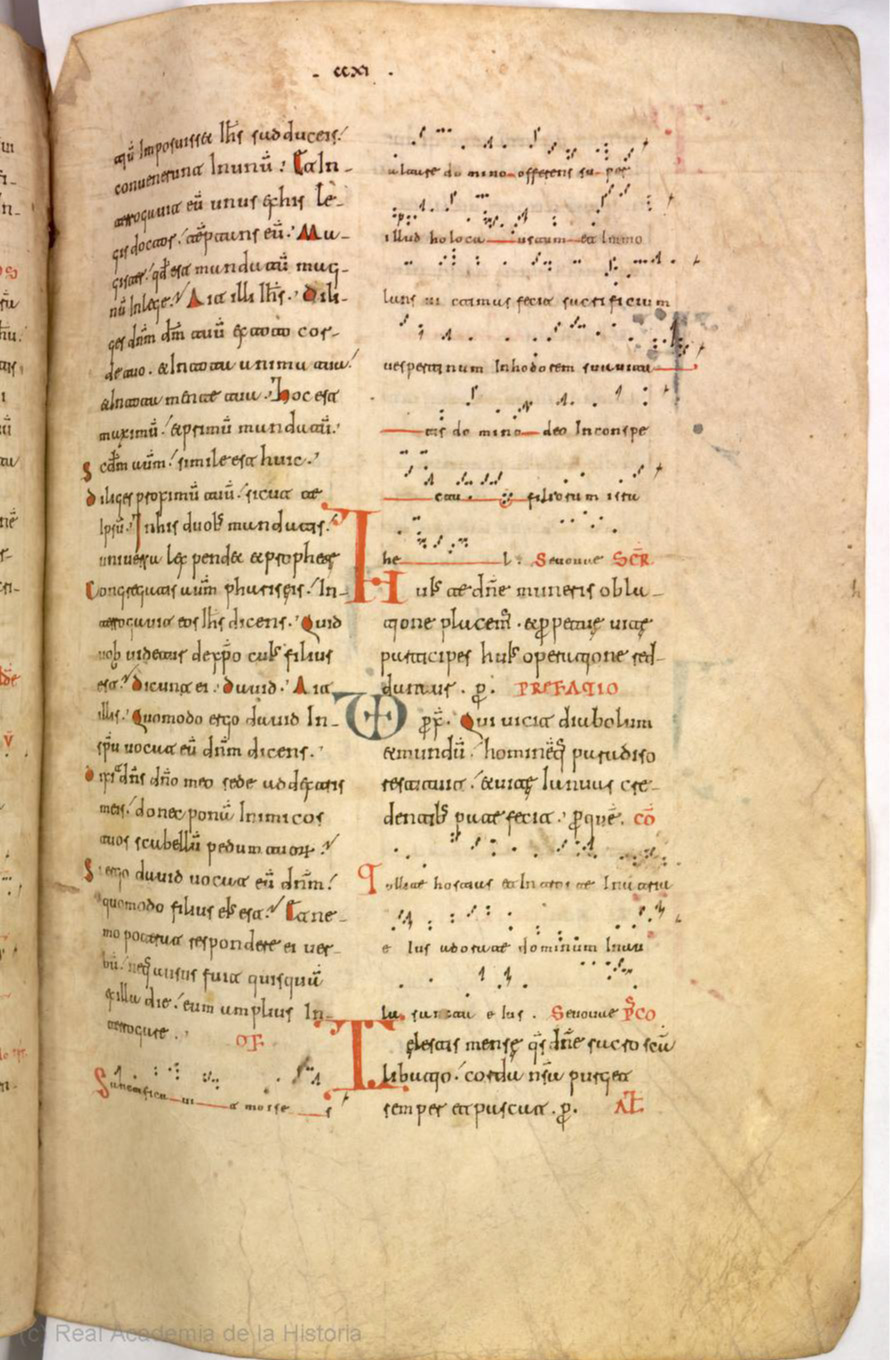 . ccxi .
Imposuisset Ih̅s sadduceis.
convenerunt Inunū. Et In-
terrogavit eū unus ex his le-
gis doctor. tēptans eū. Ma-
gister. qd̅ est mandatū mag-
nū Inlege. Ait illi Ih̅s. Dili-
ges dn̅m dm̅ tuū ex toto cor-
de tuo. & Intota anima tua.
& Intota mente tua. hoc est
maximū. & primū mandatū.
Scd̅m aūm. simile est huic.
diliges proximū tuū. sicut te
Ipsū. Inhis duobs mandatis.
universa lex pendet & prophete
Congregatis aūm phariseis. In-
terrogavit eos Ih̅s dicens. Quid
vob videtur dexp̅o cuis filius
est. Dicunt ei. David. Ait
illis. Quomodo ergo david In
sp̅u vocat eū dn̅m dicens.
Dixit dn̅s dn̅o meo sede addextris
meis. donec ponā Inimicos
tuos scabellū pedum tuorꝝ.
Si ergo david vocat eū dn̅m.
quomodo filius ei est. Et ne-
mo poterat respondere ei ver-
bū. neq; ausus fuit quisquā
exilla die. eum amplius In-
terrogare. OF
Sanctifica vi t moise s
altare domino offerens super
illud holocaustum et Immo
lans vi ctimas fecit sacrificium
vespertinum Inhodorem suavitatis
domino deo Inconspe
ctu filiorum isra
he l. Sevovae SCR̅
Huis te dn̅e muneris obla-
tione placem̅. & ꝑpetue vite
participes huis operatione red-
damus. ꝑ. PREFATIO
ꝑx̅. Qui victo diabolum
& mundū. hominēq; paradiso
restituit. & vite Ianuas cre-
dentibs patefecit. ꝑquē. CŌ
Tollite hostias et Introite Inatria
eius adorate dominum Inau
la sancta eius. Sevovae P̅CO
Celestis mense qs̅ dn̅e sacrosc̅a
libatio. corda nr̅a purget
semper et pascat. ꝑ. AL̅
(c) Real Academia de la Historia